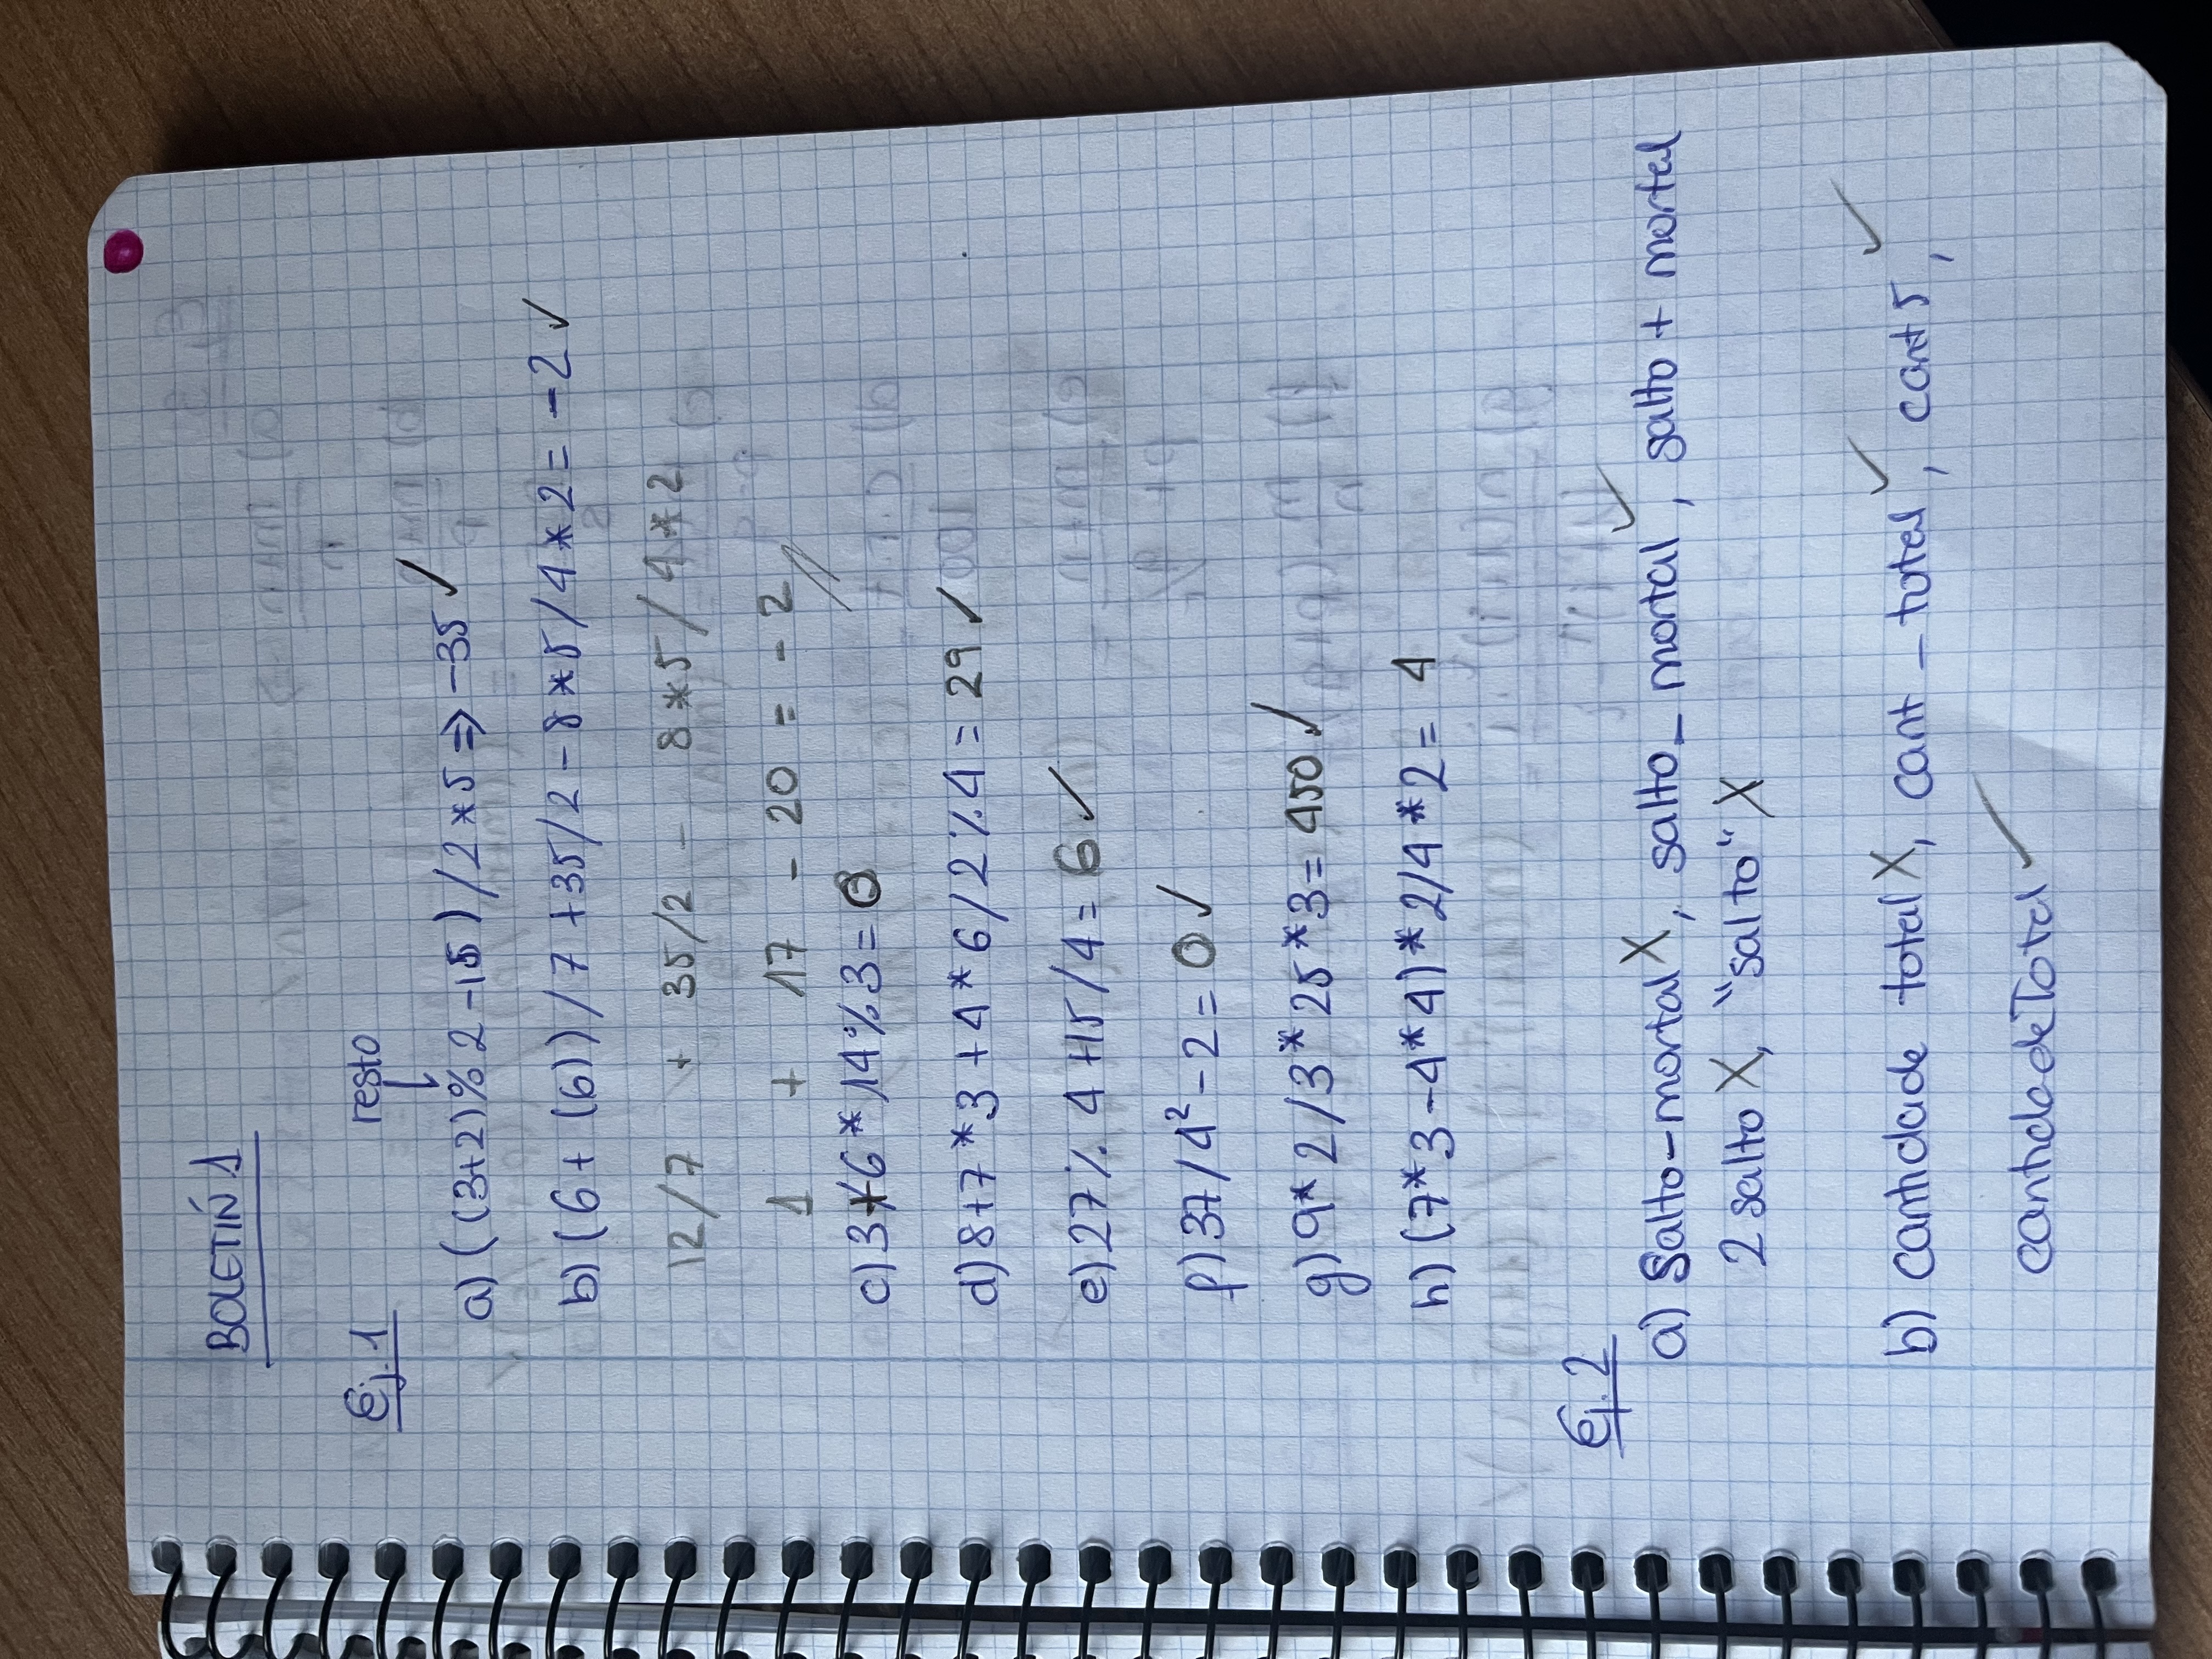 BOLETÍN 1
Ej. 1
resto
a) ((3+2)%2-15)/2*5 => -35 ✓
b) (6+(6))/7+35/2-8*5/4*2= -2 ✓
12/7 + 35/2 - 8*5/4*2
1 + 17 - 20 = -2
c) 3+6*14%3=
d) 8+7*3+4*6/2%4= 29 ✓
e) 27% 4+15/4= 6 ✓
f) 37/4²-2= 0 ✓
g) 9*2/3*25*3= 450 ✓
h) (7*3-4*4)*2/4*2= 4
Ej. 2
a) Salto-mortal X, salto_mortal ✓, salto + mortal
2 salto X, "salto" X
b) cantidade total X, cant_total ✓, cant5 ✓,
cantidadeTotal ✓